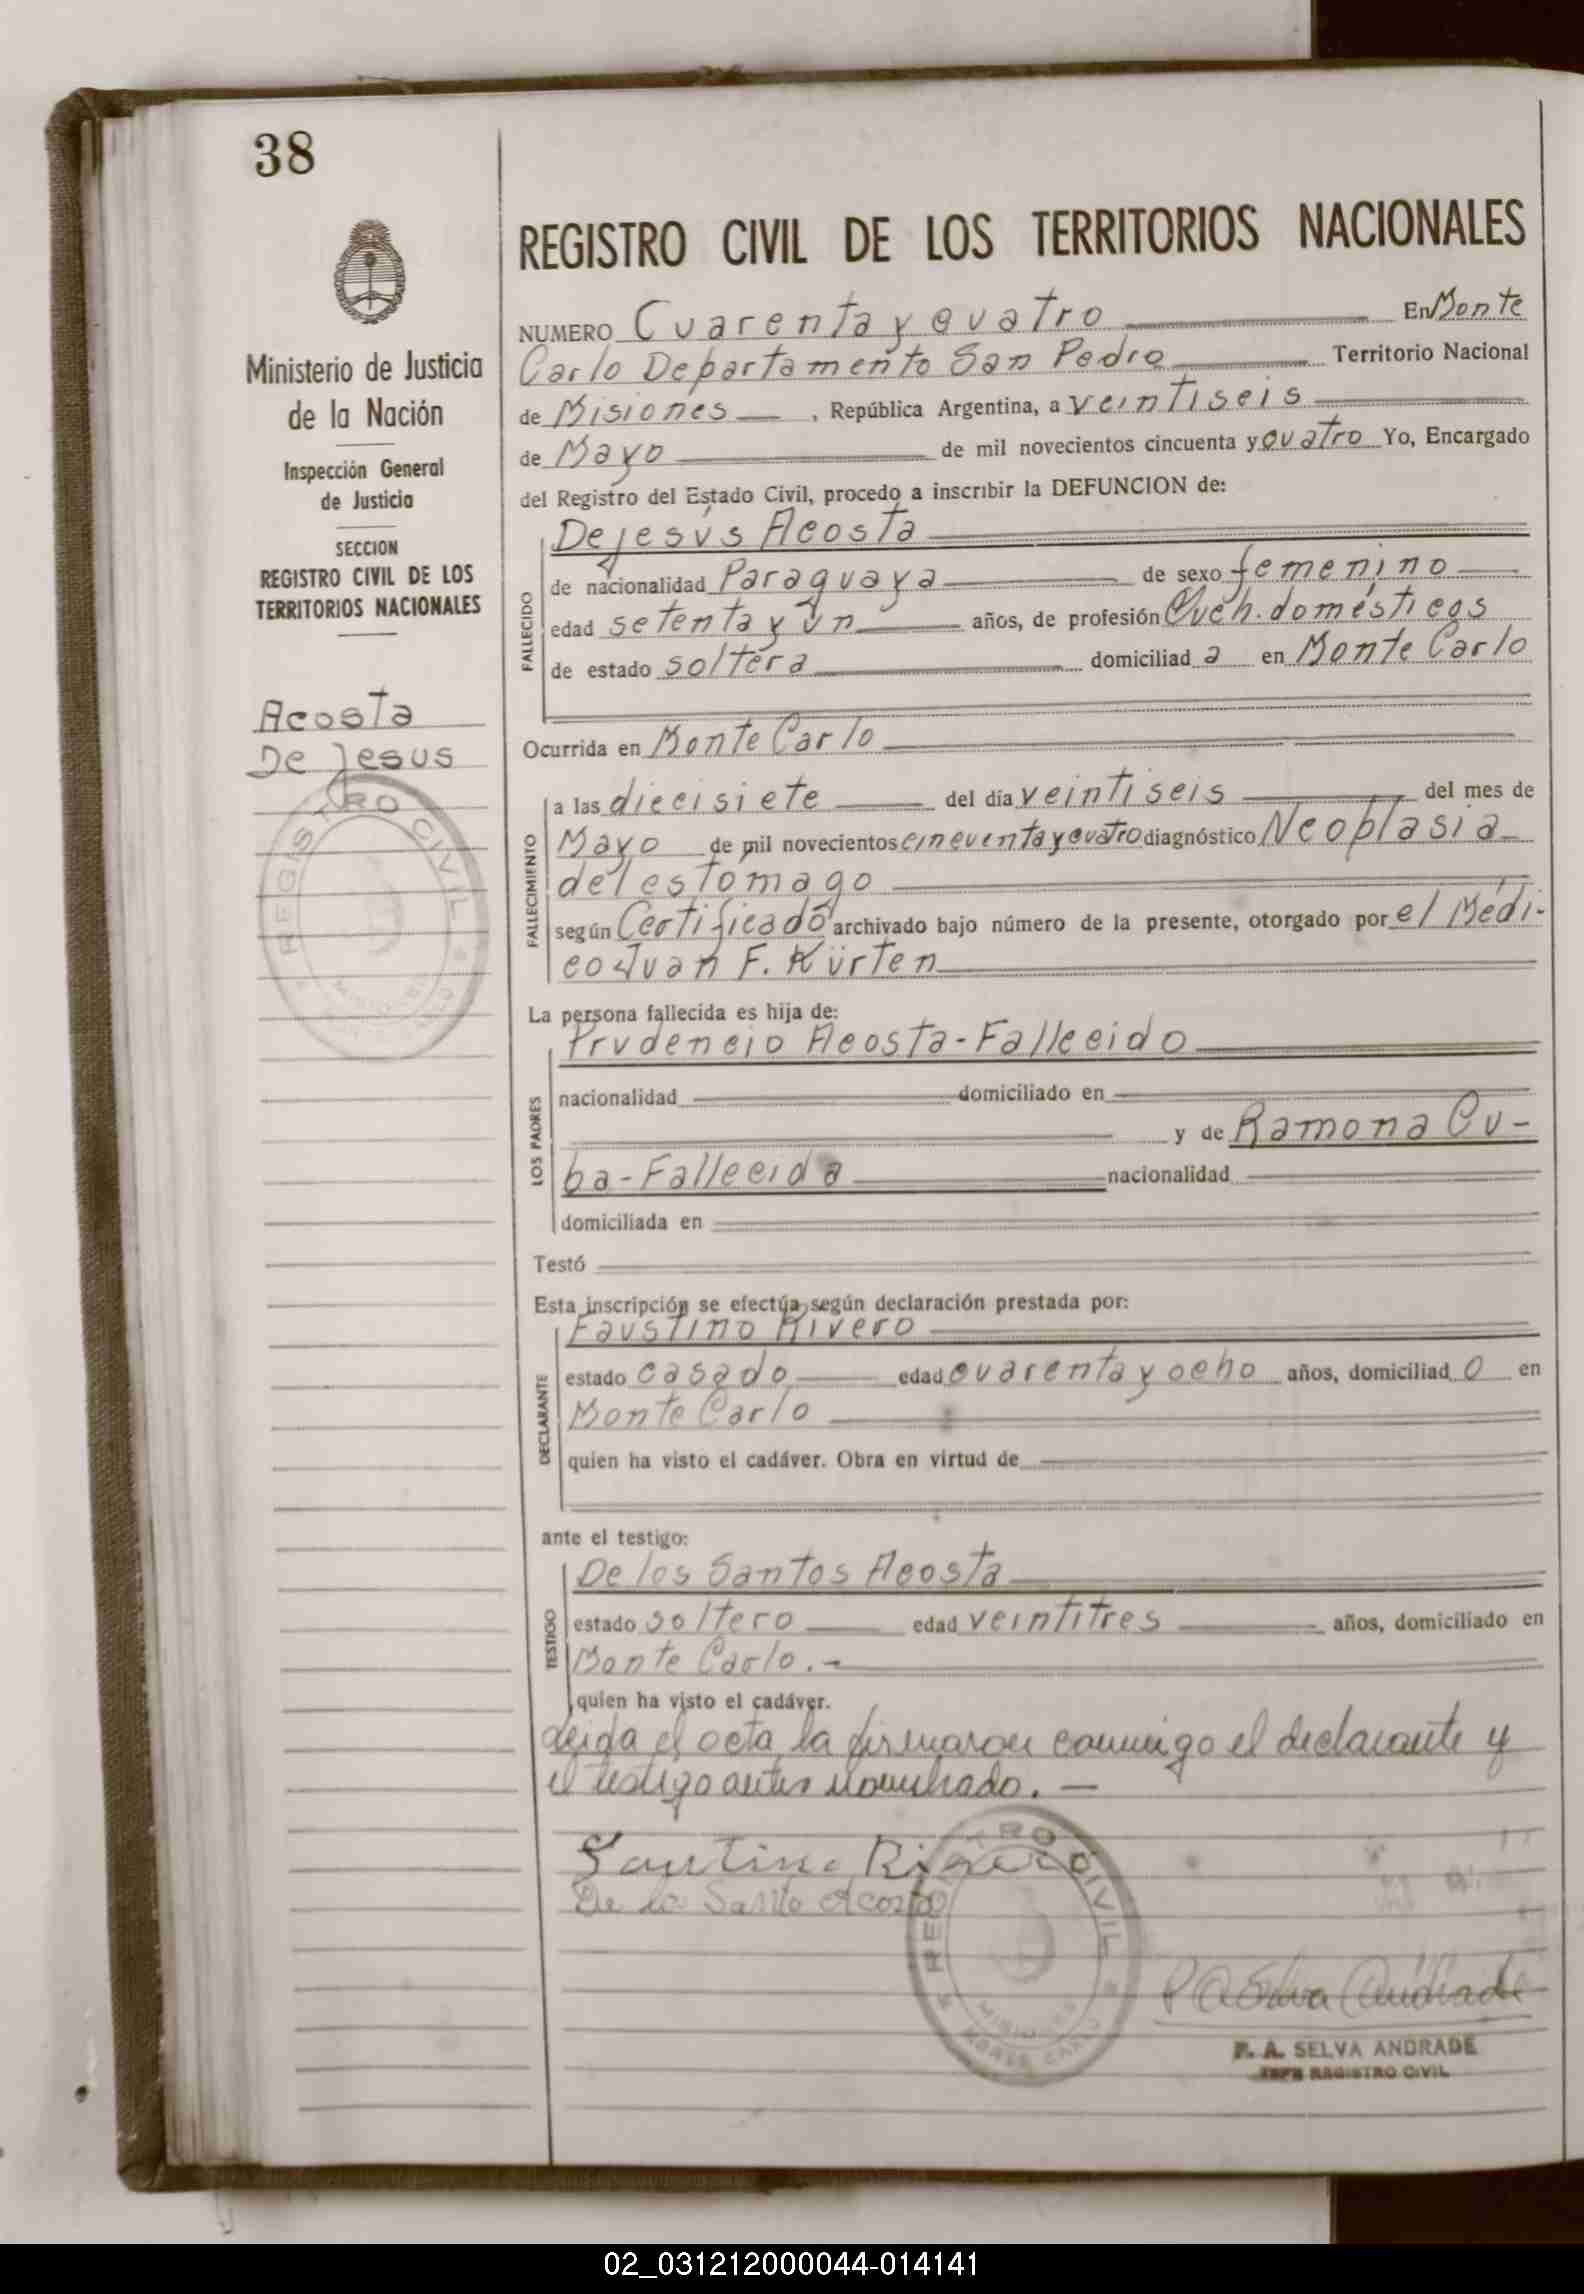 38
Ministerio de Justicia
de la Nación
Inspección General
de Justicia
SECCION
REGISTRO CIVIL DE LOS
TERRITORIOS NACIONALES
Acosta
De Jesus
REGISTRO CIVIL
REGISTRO CIVIL DE LOS TERRITORIOS NACIONALES
NUMERO Cuarenta y cuatro En Monte
Carlo Departamento San Pedro Territorio Nacional
de Misiones, República Argentina, a veintiseis
de Mayo de mil novecientos cincuenta y cuatro Yo, Encargado
del Registro del Estado Civil, procedo a inscribir la DEFUNCION de:
FALLECIDO
De jesús Acosta
de nacionalidad Paraguaya de sexo femenino
edad setenta y un años, de profesión Queh. domésticos
de estado soltera domiciliad a en Monte Carlo
Ocurrida en Monte Carlo
FALLECIMIENTO
a las diecisiete del día veintiseis del mes de
Mayo de mil novecientos cincuenta y cuatro diagnóstico Neoplasia
del estomago
según Certificado archivado bajo número de la presente, otorgado por el Médi-
co Juan F. Kürten
La persona fallecida es hija de:
LOS PADRES
Prudencio Acosta - Fallecido
nacionalidad domiciliado en
y de Ramona Cu-
ba - Fallecida nacionalidad
domiciliada en
Testó
Esta inscripción se efectúa según declaración prestada por:
DECLARANTE
Faustino Rivero
estado casado edad cuarenta y ocho años, domiciliad o en
Monte Carlo
quien ha visto el cadáver. Obra en virtud de
ante el testigo:
TESTIGO
De los Santos Acosta
estado soltero edad veintitres años, domiciliado en
Monte Carlo.-
quien ha visto el cadáver.
Leida el acta, la firmaron conmigo el declarante y
el testigo antes nombrado. —
De lo Santo Acosta
REGISTRO CIVIL
MISIONES
MONTE CARLO
P A Selva Andrade
P. A. SELVA ANDRADE
JEFE REGISTRO CIVIL
02_031212000044-014141